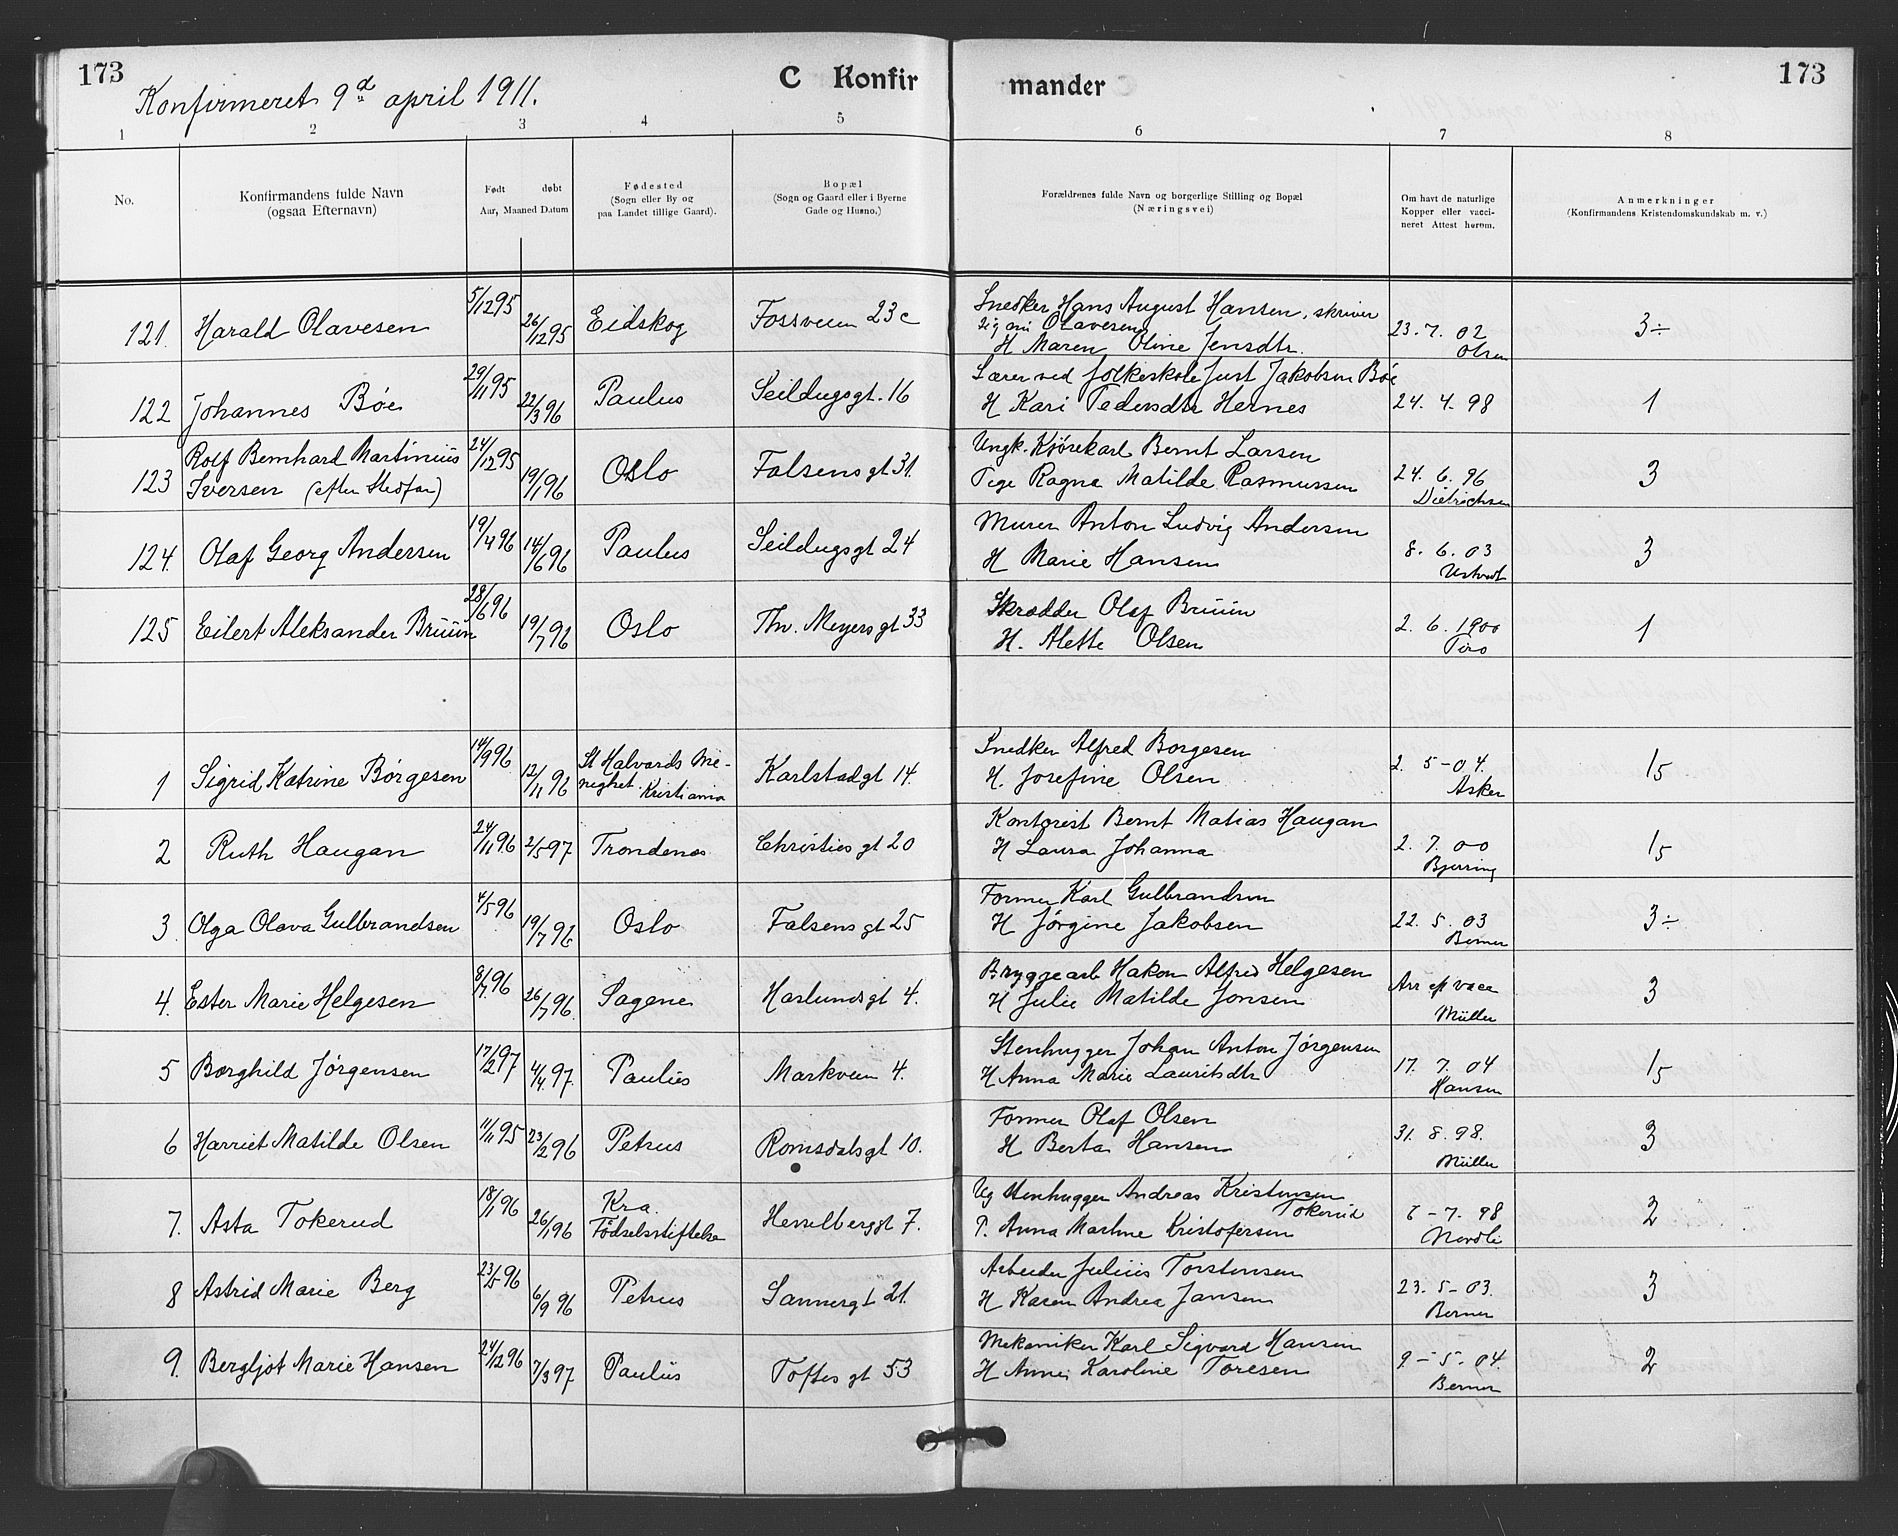 173
Konfirmeret 9d april 1911.
C Konfir
mander
173
1 2 3 4 5 6 7 8
No.
Konfirmandens fulde Navn
(ogsaa Efternavn)
Født døbt
Aar, Maaned Datum
Fødested
(Sogn eller By og
paa Landet tillige Gaard).
Bopæl
(Sogn og Gaard eller i Byerne
Gade og Husno.)
Forældrenes fulde Navn og borgerlige Stilling og Bopæl
(Næringsvei)
Om havt de naturlige
Kopper eller vacci-
neret Attest herom.
Anmerkninger
(Konfirmandens Kristendomskundskab m. v.)
121. Harald Olavesen 5/12 95 26/12 95 Eidskog Fossveien 23c
Snedker Hans August Hansen, skriver
sig Olavesen
H Maren Oline Jensdtr. 23. 7. 02 Olsen 3÷
122 Johannes Bøe 29/11 95 22/3 96 Paulus Seildugsgt. 16
Lærer ved folkeskole Just Jakobsen Bøe
H Kari Pedersdtr Hernes 24. 4. 98 1
123 Rolf Bernhard Martinius
Iversen (efter Stedfar) 24/12 95 19/1 96 Oslo Falsens gt 31.
Ungk. Kjørekarl Bernt Larsen
Pige Ragna Matilde Rasmussen 24. 6. 96 Dietrichsen 3
124. Olaf Georg Andersen 19/4 96 14/6 96 Paulus Seildugsgt 24
Murer Anton Ludvig Andersen
H Marie Hansen 8. 6. 03 Ustvedt 3
125 Eilert Aleksander Bruun 28/6 96 19/7 96 Oslo Th. Meyers gt 33
Skrædder Olaf Bruun
H. Alette Olsen 2. 6. 1900 1
1 Sigrid Katrine Børgesen 14/9 96 12/11 96 St Halvards Me-
nighet. Kristiania Karlstadgt 14
Snedker Alfred Borgesen
H. Josefine Olsen 2. 5-04. Asker 15
2 Ruth Haugan 24/11 96 2/5 97 Trondenes Christies gt 20
Kontorist Bernt Matias Haugan
H Laura Johanna 2. 7. 00 Bjerring 15
3. Olga Olava Gulbrandsen 4/5 96 19/7 96 Oslo Falsens gt 25
Former Karl Gulbrandsen
H Jørgine Jakobsen 22. 5. 03 Berner 3÷
4. Ester Marie Helgesen 8/7 96 26/7 96. Sagene Haslunds gt 4.
Bryggearb Hakon Alfred Helgesen
H Julie Matilde Jonsen Arr ef vacc Müller 3
5 Borghild Jørgensen 17/2 97 4/4 97. Paulus Markveien 4.
Stenhugger Johan Anton Jørgensen
H Anna Marie Lauritsdtr 17. 7. 04 Hansen 15
6 Harriet Matilde Olsen 11/11 95 23/2 96 Petrus Romsdalsgt 10.
Former Olaf Olsen
H Berta Hansen 31. 8. 98. Müller 3
7. Asta Tokerud 18/1 96 26/1 96 Kra.
Fødselsstiftelse Hesselberggt 7.
Ug Stenhugger Andreas Kristensen
Tokerud
P. Anna Martine Kristofersen 6-7. 98 Nordli 2
8 Astrid Marie Berg 23/5 96 6/9 96 Petrus Sannergt 21.
Arbeider Julius Torstensen
H Karen Andrea Jansen 23. 5-03. Berner 3
9. Bergljot Marie Hansen 24/12 96 7/3 97 Paulus Toftes gt 53
Mekaniker Karl Sigvard Hansen
H Anna Karoline Toresen 9-5-04. Berner 2